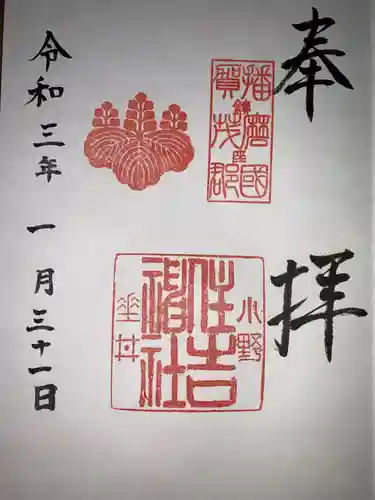 奉拝
播磨國
鎮座
賀茂郡
住吉
神社
小野
令和三年 一月三十一日